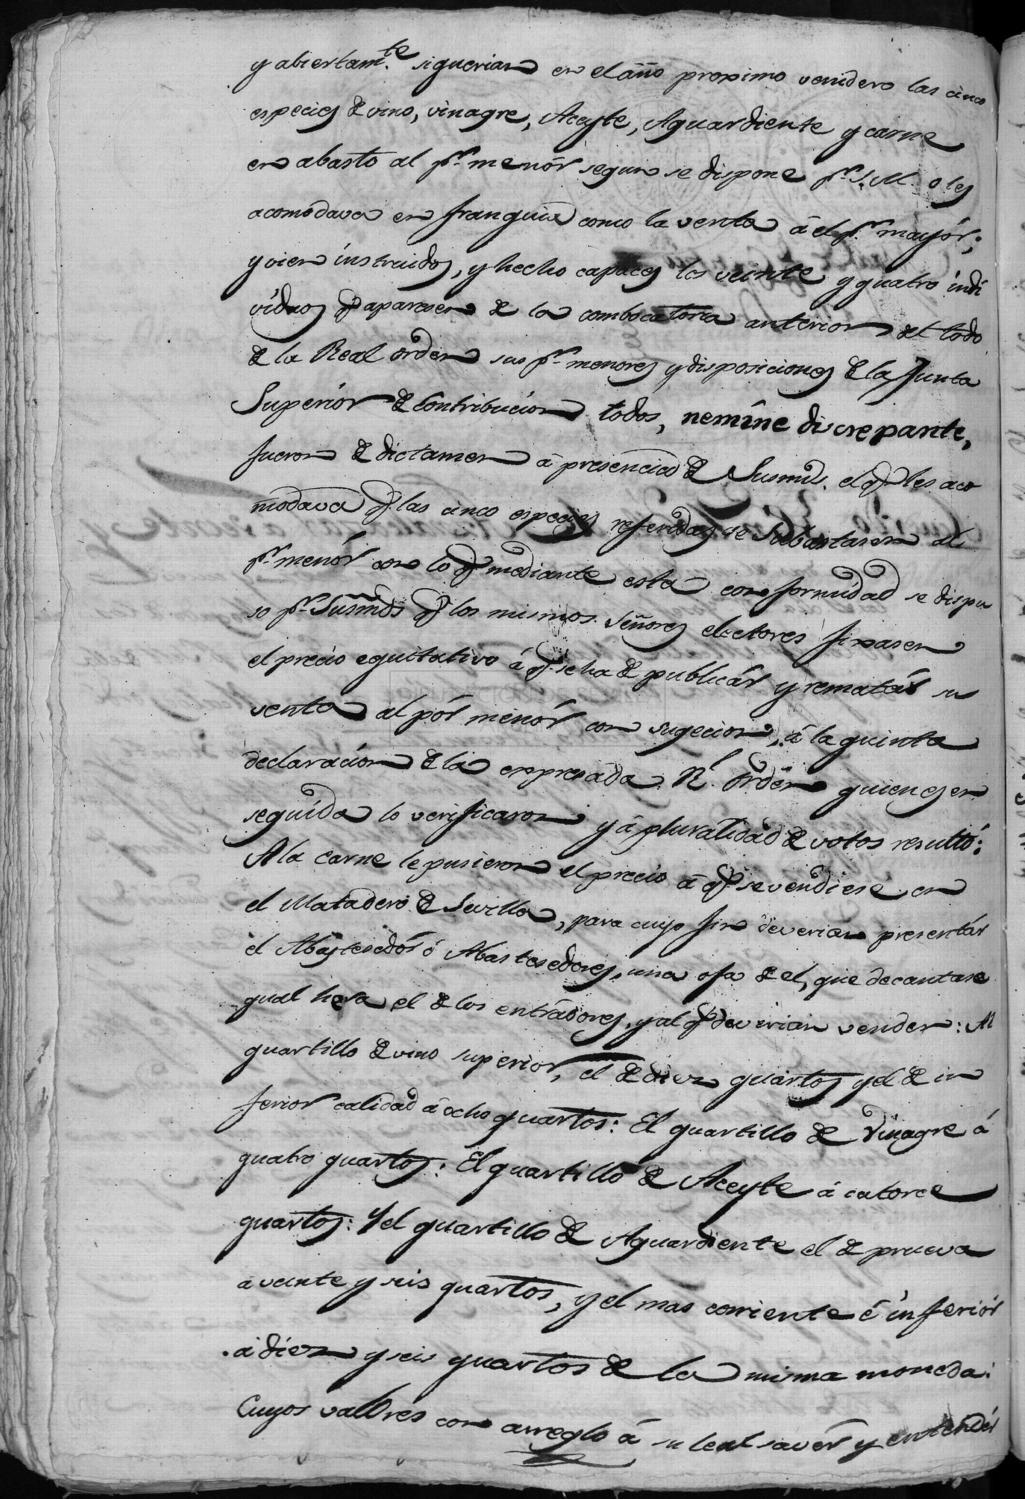 y abiertam.te siguerian en el año proximo venidero las cinco
especies de vino, vinagre, Aceyte, Aguardiente y carne
en abasto al p.r menór segun se dispone p.r S. M. o les
acomodava en franquia como la venta á el p.r mayór;
y vien instruidos, y hecho capaces los veinte y quatro indi
viduos q.e aparecen de la combocatoria anterior del todo
de la Real orden sus p.r menores y disposiciones de la Junta
Superiór de Contribucion todos, nemine discrepante,
fueron de dictamen á presencia de Susmds. el q.e les aco
modava q.e las cinco especies referidas se subastasen al
p.r menór con lo q.e mediante esta conformidad se dispu
so p.r Susmds q.e los mismos Señores electores fixasen
el precio equitativo á q.e se ha de publicár y rematár su
venta al pór menór con sugecion á la quinta
declaración de la expresada R.l orden quienes en
seguida lo verificaron y á pluralidad de votos resultó:
A la carne le pusieron el precio á q.e se vendiese en
el Matadero de Sevilla, para cuyo fin deverian presentár
el Abastesedór ó Abastesedores, una oja de el, que decantase
qual hera el de los entradores, y al q.e deverian vender: Al
quartillo de vino superior, el de diez quartos y el de in
ferior calidad á ocho quartos: El quartillo de Vinagre á
quatro quartos: El quartillo de Aceyte á catorce
quartos: Y el quartillo de Aguardiente el de prueva
a veinte y seis quartos, y el mas corriente é inferiór
á diez y seis quartos de la misma moneda:
Cuyos valores con arreglo á su leal savér y entendér